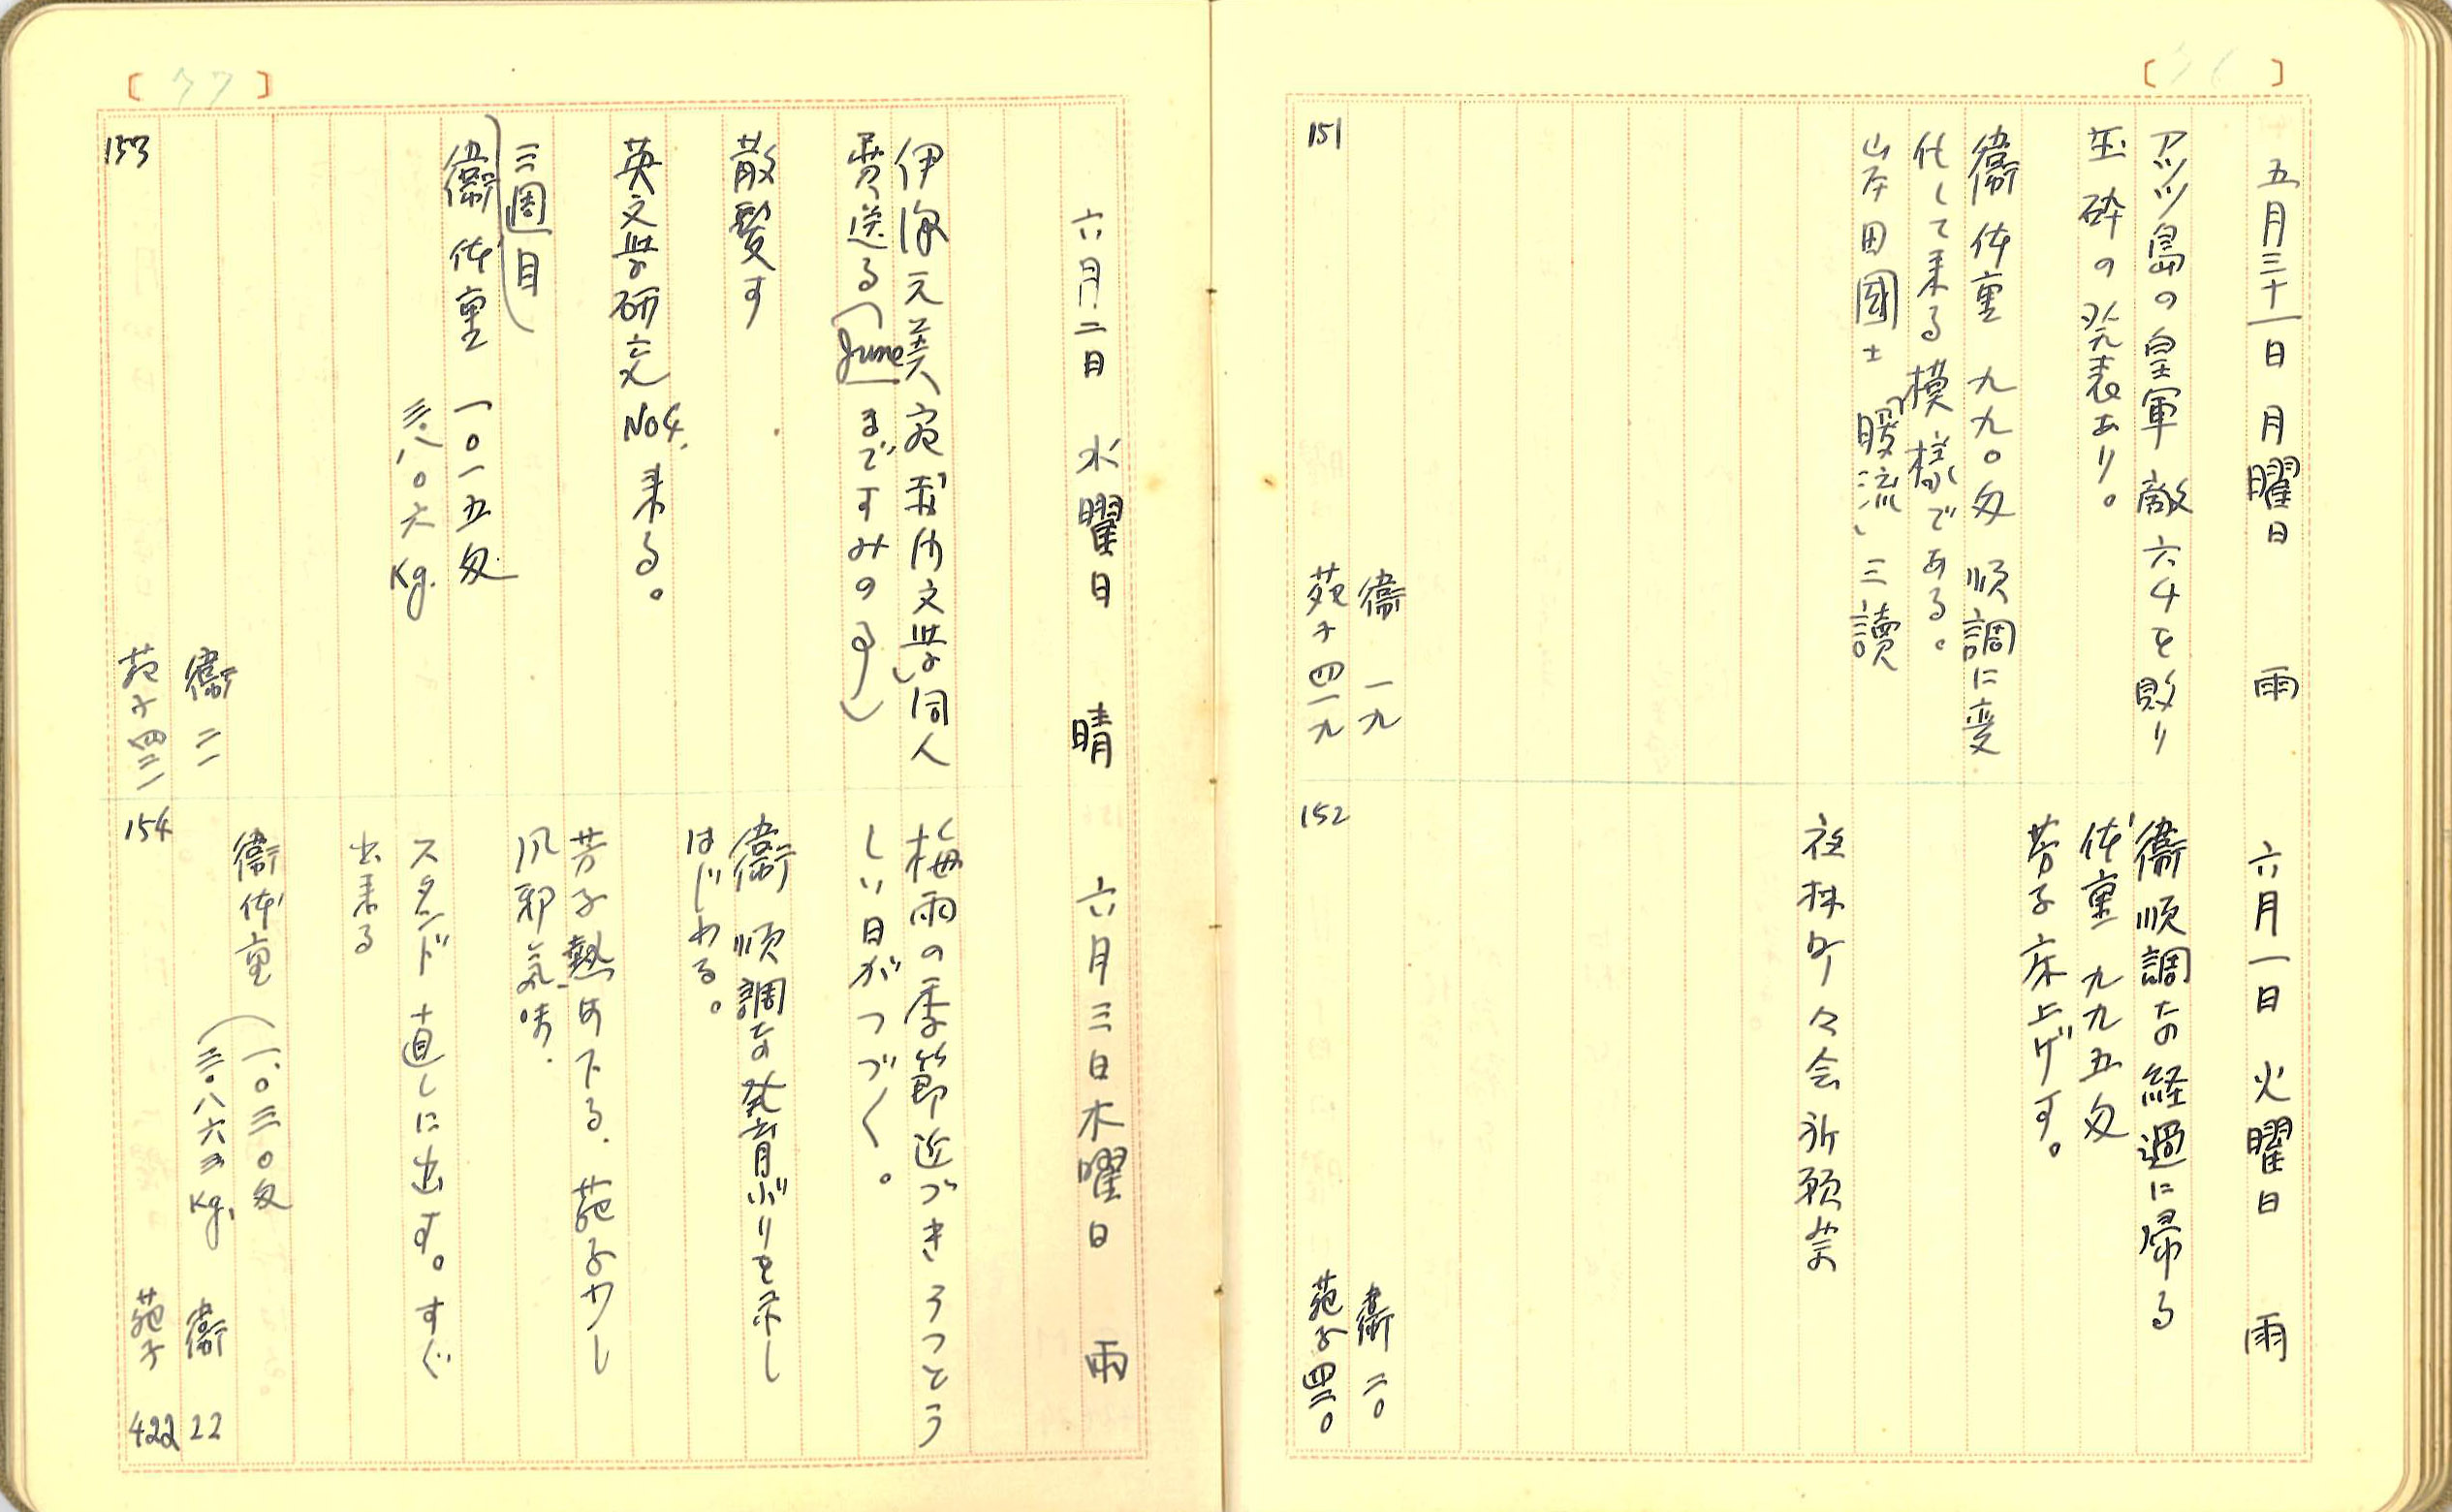 五月三十一日 月曜日 雨
アッツ島の皇軍 敵六千を敗り
玉砕の発表あり。
衞 体重 九九〇匁 順調に変
化して来る模様である。
岸田國士「暖流」三讀
衞 一九
苑子 四一九
151
六月一日 火曜日 雨
衞順調なの経過に帰る
体重 九九五匁
芳子床上げす。
町々会祈願祭
衞 二〇
苑子 四二〇
152
六月二日 水曜日 晴
伊 元美宛 文学」同人
費送る(Juneまですみの事)
散髪す
英文学研究 No4. 来る。
三週目
衞 体重 一〇一五匁
三.八〇六 Kg.
衞 二一
苑子 四二一
153
六月三日 木曜日 雨
梅雨の季節近づき うつとう
しい日がつづく。
衞 順調な発育ぶりを示し
はじめる。
芳子熱め下る. 苑子少し
風邪気味.
スタンド 直しに出す。すぐ
出来る
衞体重 (一.〇三〇匁
(三.八六三Kg.
衞 22
苑子 422
154